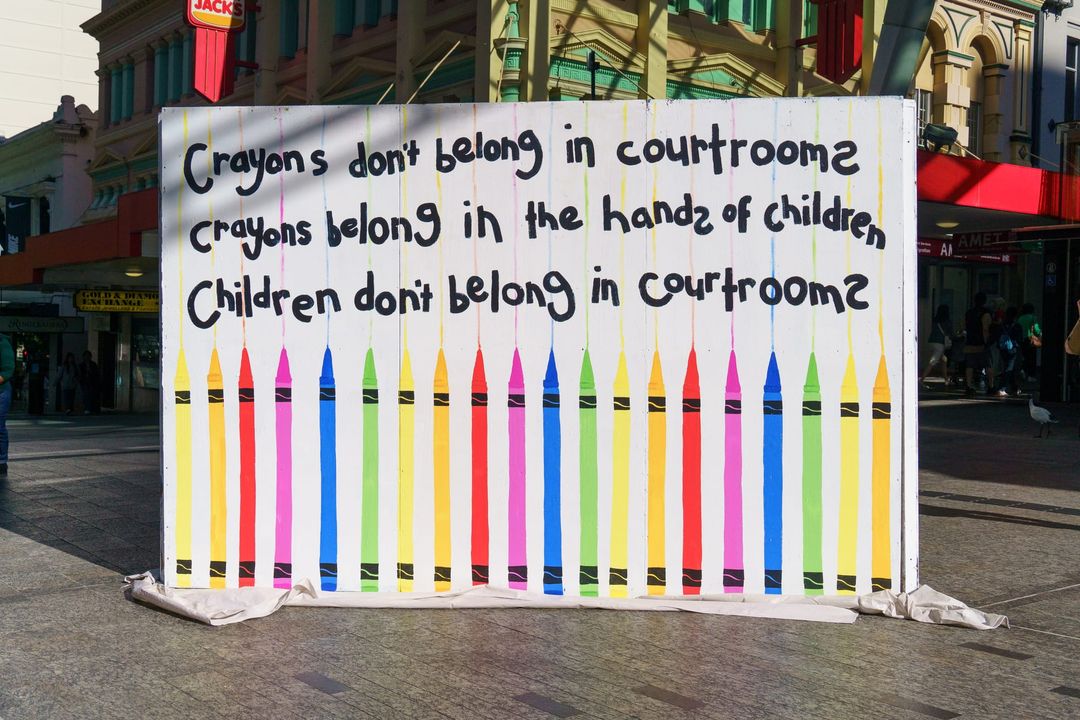 JACKS
Crayons don't belong in courtrooms
crayons belong in the hands of children
Children don't belong in courtrooms
GOLD & DIAMO
EXCHANGE
AMET